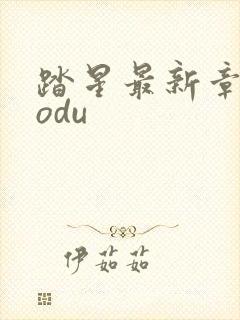 踏星最新章
odu
伊茹茹